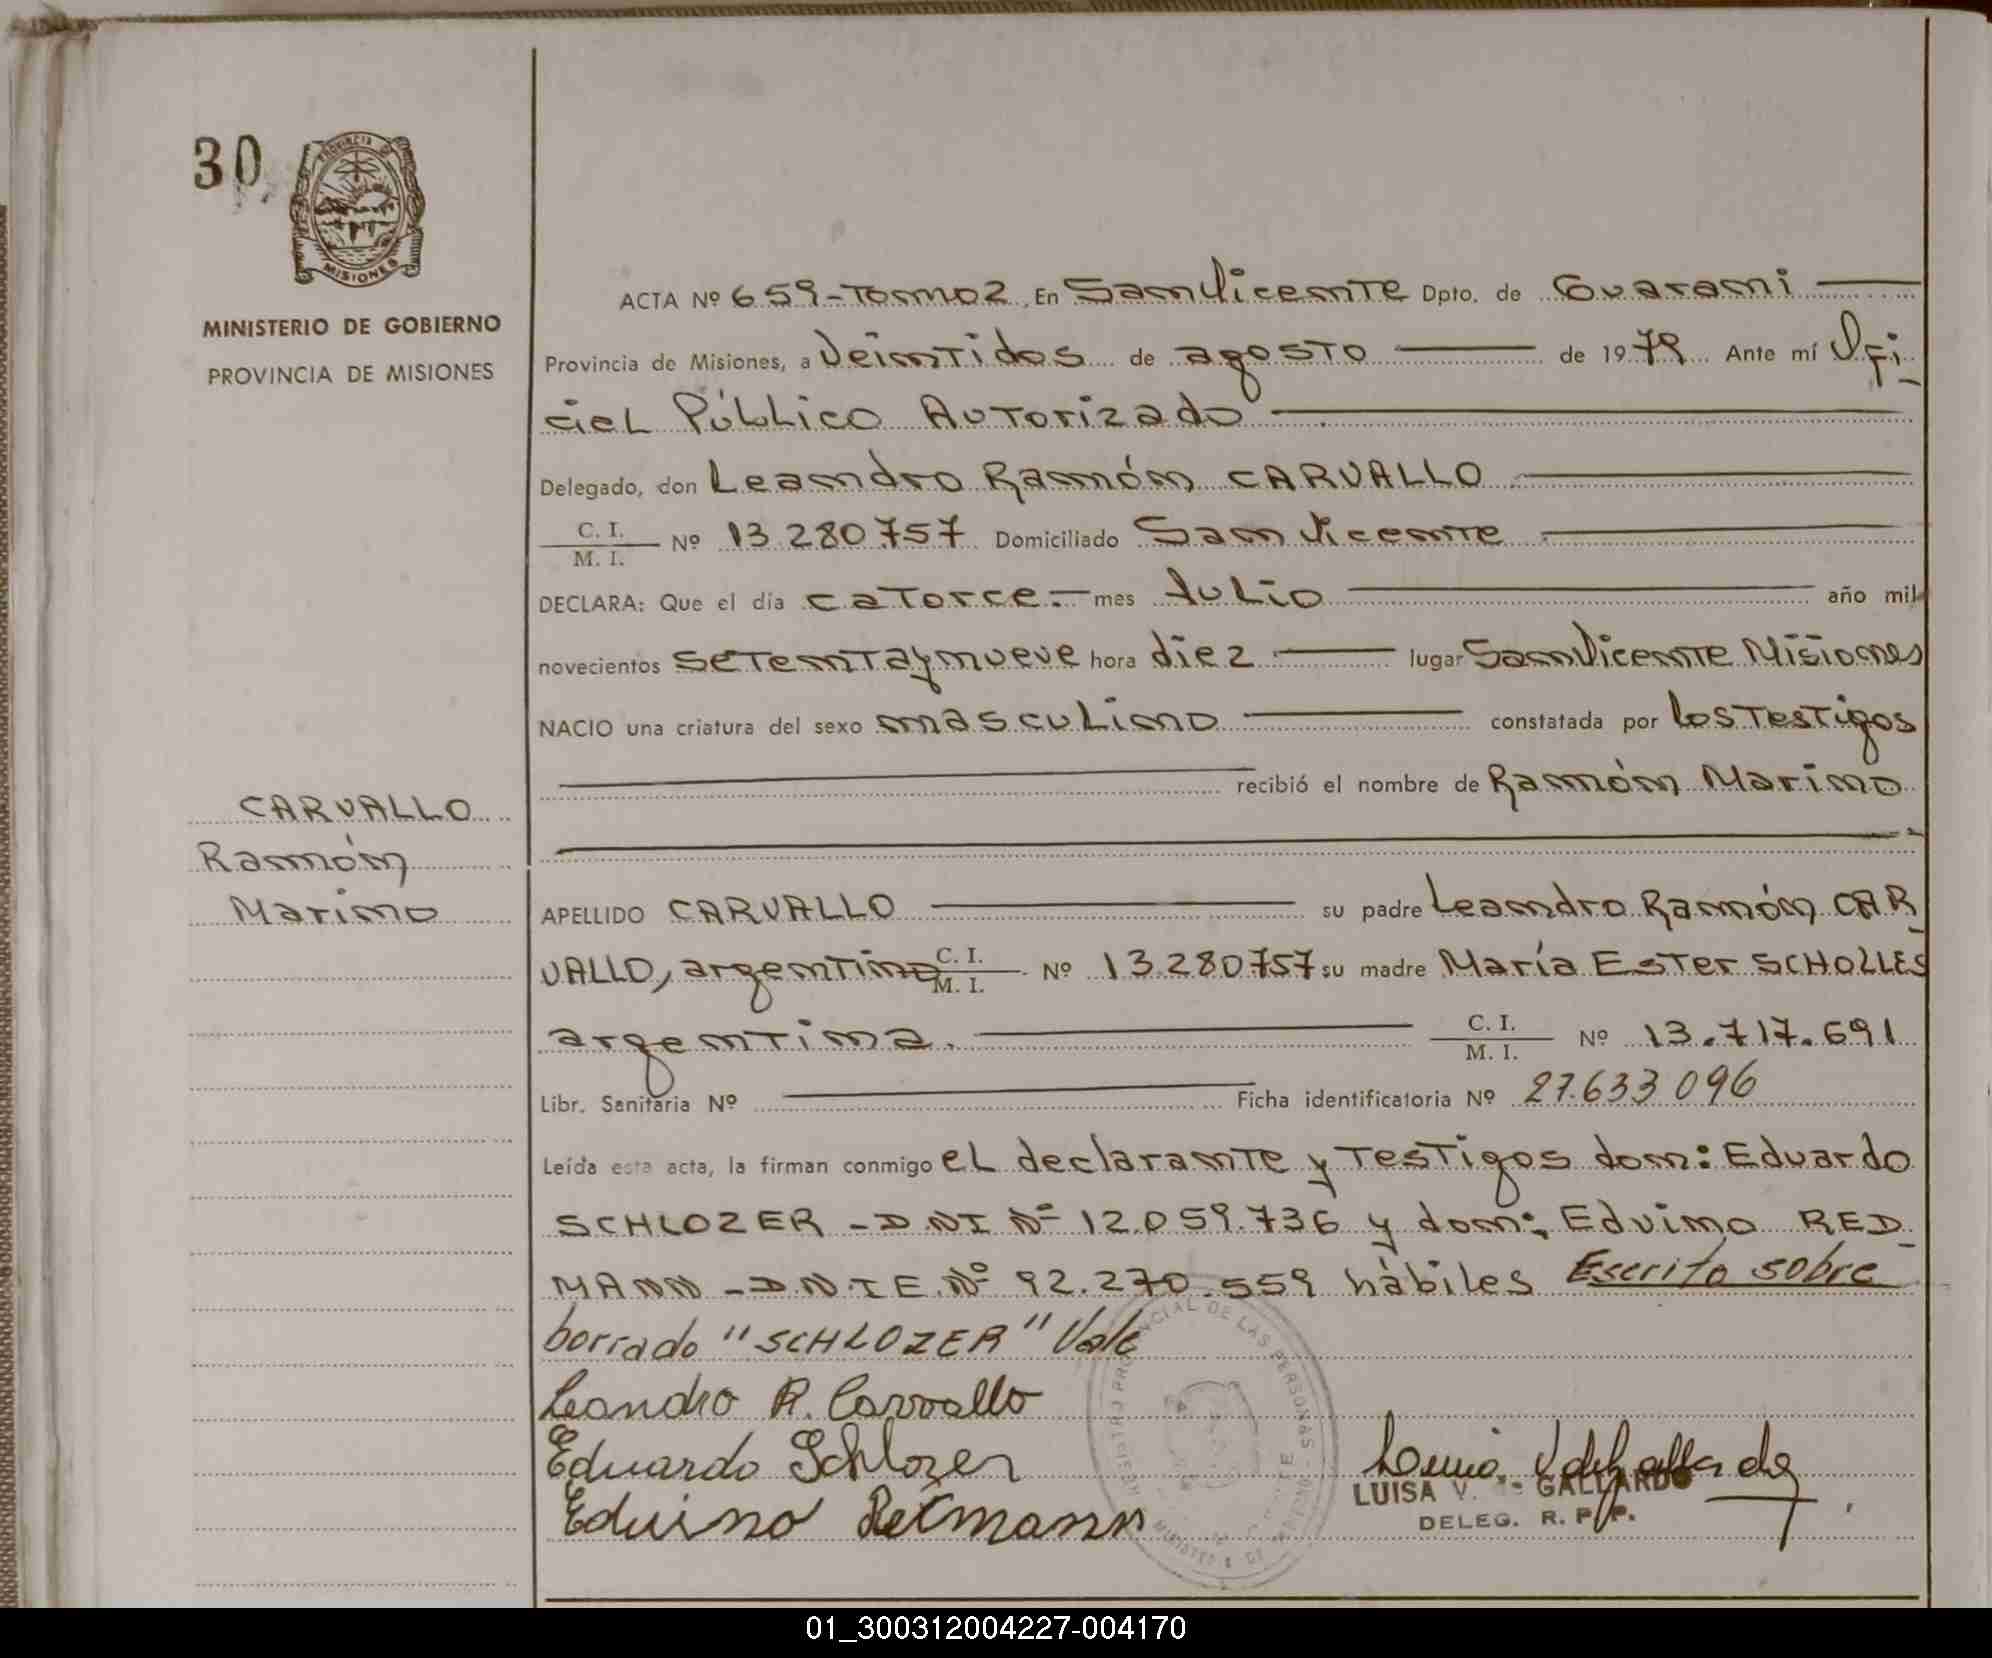 30
PROVINCIA DE
MISIONES
MINISTERIO DE GOBIERNO
PROVINCIA DE MISIONES
ACTA Nº 659-Tomo2 En San Vicente Dpto. de Guaraní
Provincia de Misiones, a veintidos de agosto de 1979 Ante mí Ofi-
cial Público Autorizado
Delegado, don Leandro Ramón CARVALLO
C. I.
M. I. Nº 13.280.757 Domiciliado San Vicente
DECLARA: Que el día catorce.- mes Julio año mil
novecientos setentaynueve hora diez lugar San Vicente Misiones
NACIO una criatura del sexo masculino constatada por los Testigos
recibió el nombre de Ramón Marino
CARVALLO
Ramón
Marino
APELLIDO CARVALLO su padre Leandro Ramón CAR-
VALLO, argentino C. I. M. I. Nº 13.280.757 su madre María Ester SCHOLLES
argentina. C. I. M. I. Nº 13.717.691
Libr. Sanitaria Nº Ficha identificatoria Nº 27.633.096
Leída esta acta, la firman conmigo el declarante y Testigos don: Eduardo
SCHLOZER - D.NI Nº 12.059.736 y don: Eduino RED-
MANN - D.N.I E. Nº 92.270.559 hábiles Escrito sobre
borrado "SCHLOZER" Vale
Leandro R. Carvallo
Eduardo Schlozer
Eduino Retmann
LUISA V. de GALLARDO
DELEG. R. P. P.
01_300312004227-004170